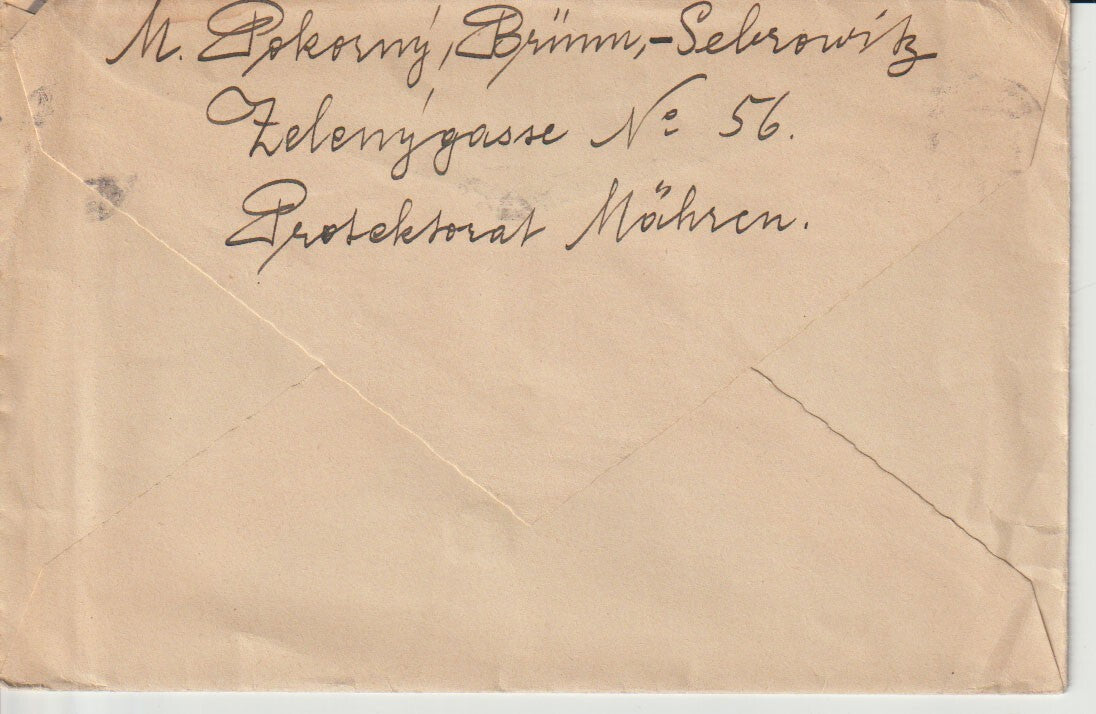 M. Pokorný, Brünn,-Sebrowitz
Zelenýgasse No 56.
Protektorat Mähren.